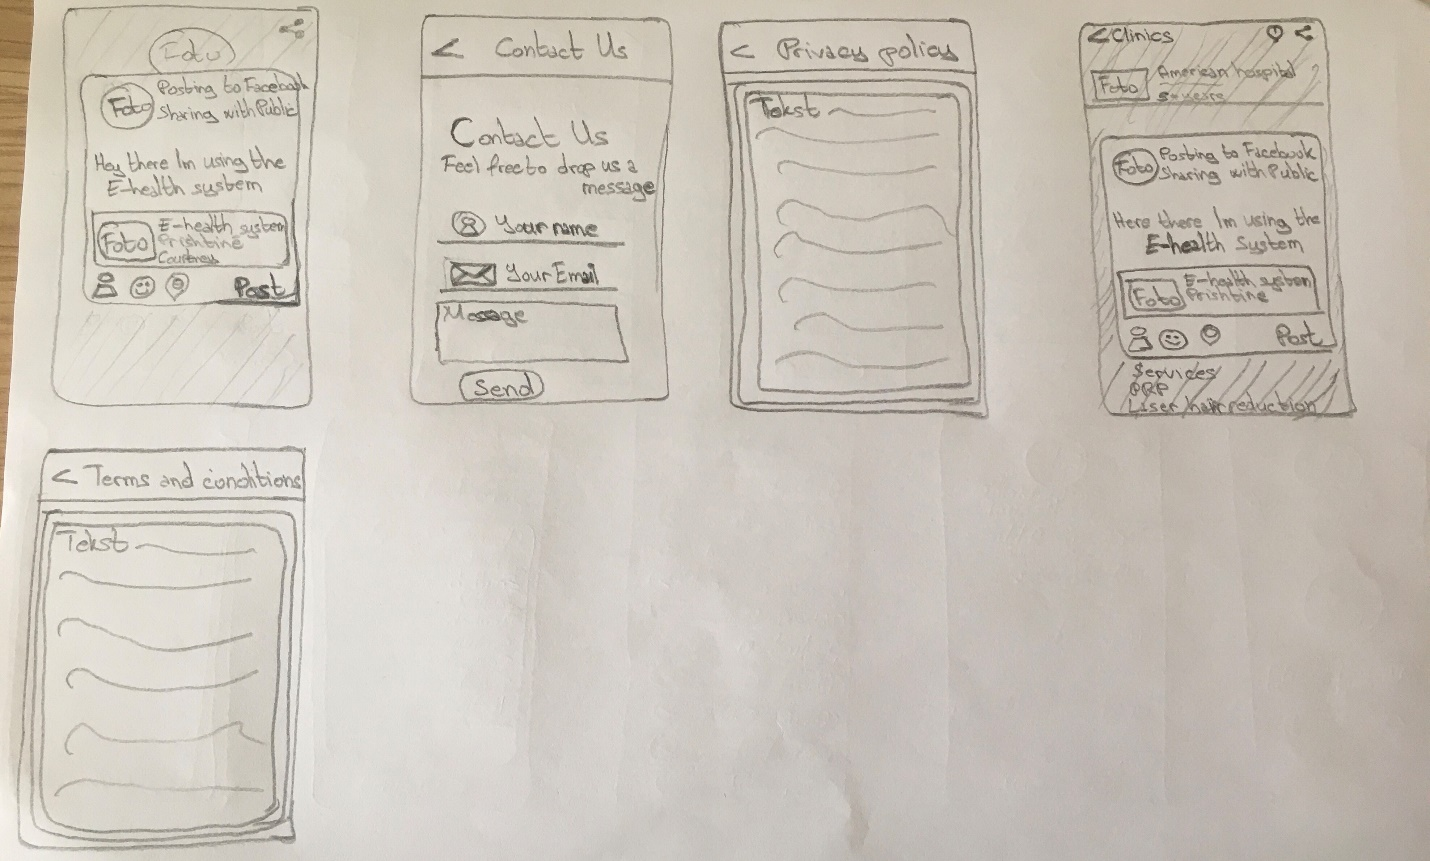 Foto
Posting to Facebook
Foto
Sharing with Public
Hey there Im using the
E-health system
E-health system
Foto
Prishtinë
Post
< Contact Us
Contact Us
Feel free to drop us a
message
Your name
Your Email
Message
Send
< Privacy policy
Tekst
< Clinics
Foto
American hospital
Posting to Facebook
Foto
Sharing with Public
Here there Im using the
E-health System
E-health system
Foto
Prishtine
Post
Services
PRP
Laser hair reduction
< Terms and conditions
Tekst